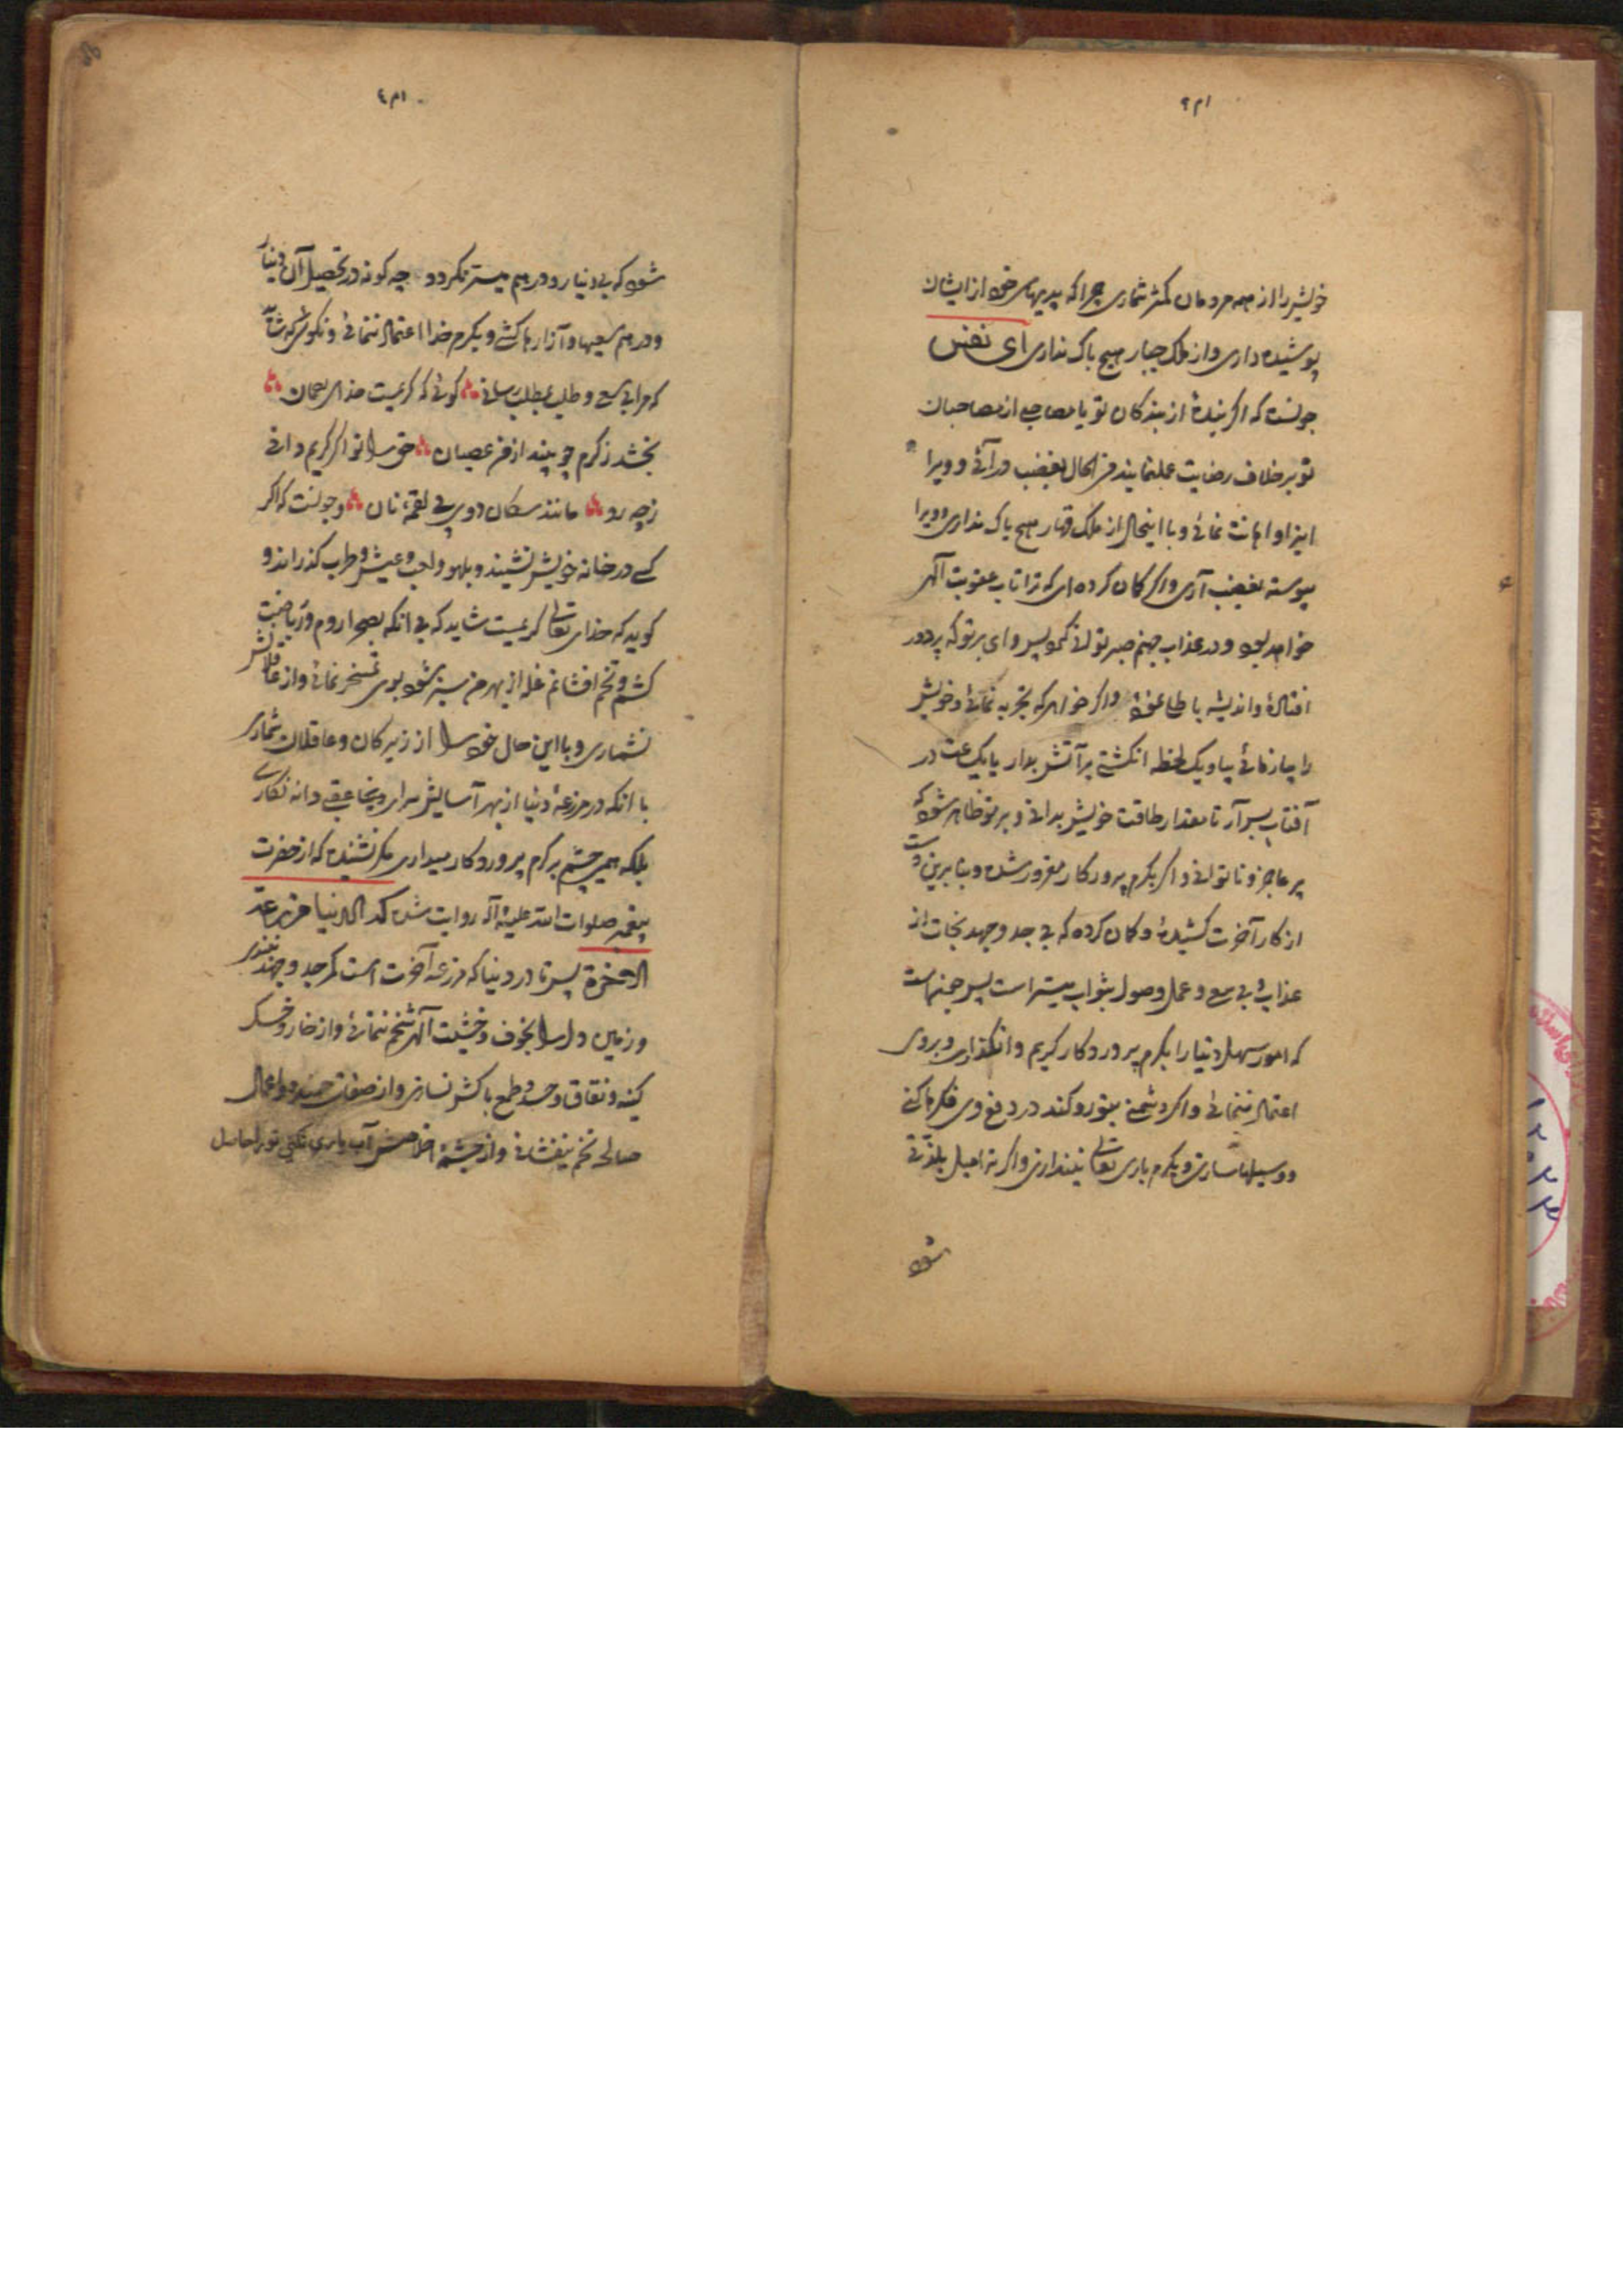 خویش را از همه مردمان کمتر شماری چرا که بدیهای خود از ایشان
پوشیده داری و از ملک جبار هیچ باک نداری ای نفس
چونست که اگر بنده از بندکان تو یا مصاحبی از مصاحبان
تو بر خلاف رضایت عمل نمایند فی الحال بغضب در آئی و ویرا
ایذا و اهانت نمائی و با اینحال از ملک قهار هیچ باک نداری و ویرا
پیوسته بغضب آری و اگر کمان کرده ای که ترا تاب عقوبت الهی
خواهد بود و در عذاب جهنم صبر توانی نمود پس وای بر تو که پر دور
افتاده و اندیشه باطل نموده و اگر خواهی که تجربه نمائی و خویش
را بیازمائی بیا و یک لحظه انکشتی بر آتش بدار یا یک ساعت در
آفتاب بسر آر تا مقدار طاقت خویش بدانی و بر تو ظاهر شود که
پر عاجز و ناتوانی و اگر بکرم پروردکار مغرور شده و بنابرین دست
از کار آخرت کشیده و کمان کرده که بی جد و جهد نجات از
عذاب و بی سعی و عمل وصول بثواب میسر است پس چونست
که امور سهل دنیا را بکرم پروردکار کریم وانکذاری و بر وی
اعتماد ننمائی و اگر دشمنی بتو رو کند در دفع وی فکرها کنی
و وسیلها سازی و بکرم باری تعالی نیندازی و اگر ترا میل بلذتی
شود
شود که بی دینار و درهم میسر نکردد چه کونه در تحصیل آن دینار
و درهم سعیها و آزارها کشی و بکرم خدا اعتماد ننمائی و نکوئی که شاید
که مرا بی سعی و طلب بمطلب رسانی کوئی که کریمست خدای
بخشد ز کرم چو بیند از من عصیان حق را تو اگر کریم دانی
ز چه رو مانند سکان دوی پی لقمه نان و چونست که اگر
کسی در خانه خویش نشیند و بلهو و لعب و عیش و طرب کذراند و
کوید که خدای تعالی کریمست شاید که بی انکه بصحرا روم و ریاضت
کشم و تخم افشانم غله از بهر من سبز شود بوی تمسخر نمائی و از عاقلانش
نشماری و با این حال خود را از زیرکان و عاقلان شماری
با انکه در مزرعه دنیا از بهر آسایش سرای عقبی دانه نکاری
بلکه همین چشم بر کرم پروردکار میداری مکر نشنیده که از حضرت
پیغمبر صلوات الله علیه و آله روایت شده که الدنیا مزرعة
الاخرة پس تا در دنیا که مزرعه آخرت است کمر جد و جهد نبندی
و زمین دل را بخوف و خشیت الهی شخم ننمائی و از خار و خسک
کینه و نفاق و حسد و طمع پاکش نسازی و از صفات حمیده و اعمال
صالحه تخم نیفشانی و از چشمه اخلاصش آب یاری نکنی تو را حاصل